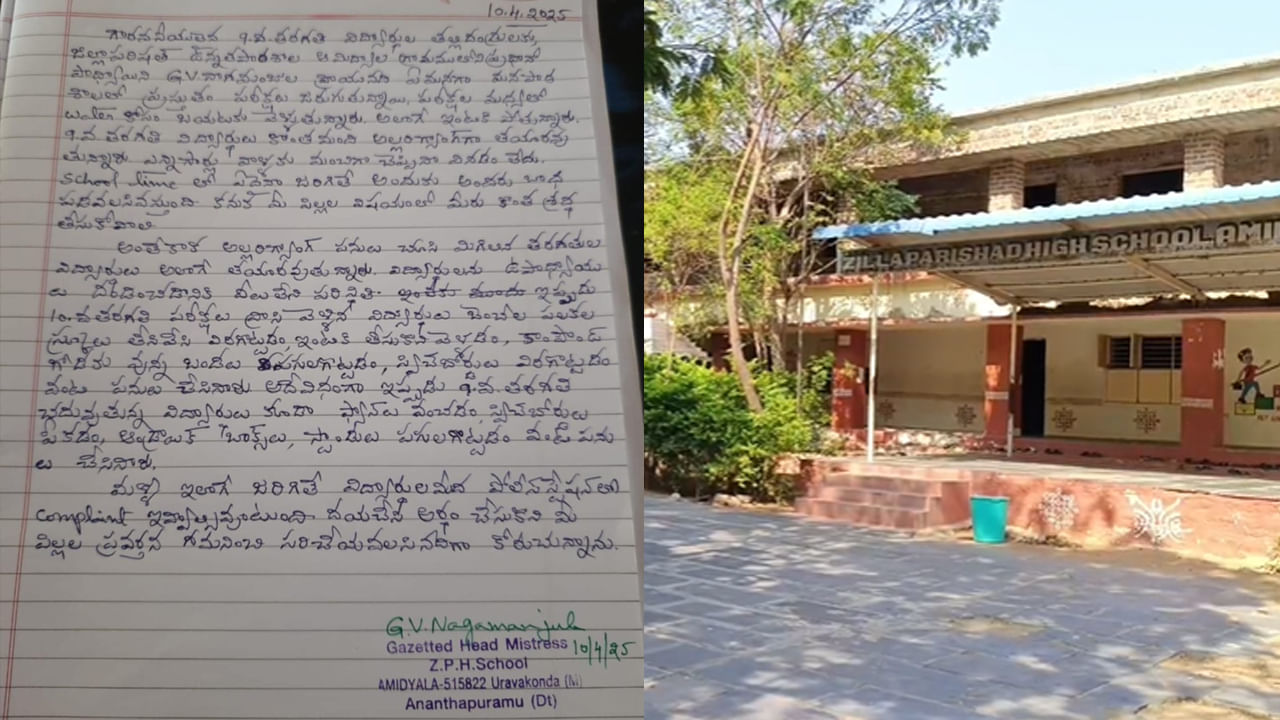 10.4.2025
గౌరవనీయులైన 9.వ.తరగతి విద్యార్థుల తల్లిదండ్రులకు,
జిల్లాపరిషత్ ఉన్నతపాఠశాల ఆమిద్యాల గ్రామములోని ప్రధానో
పాధ్యాయిని G.V.నాగమంజుల వ్రాయునది ఏమనగా మన పాఠ
శాలలో ప్రస్తుతం పరీక్షలు జరుగుతున్నాయి, పరీక్షల మధ్యలో
water కోసం బయటకు వెళ్తున్నారు. అలాగే ఇంటికి పోతున్నారు.
9.వ.తరగతి విద్యార్థులు కొంతమంది అల్లరిగ్యాంగ్‌గా తయారవు
తున్నారు. ఎన్నిసార్లు వాళ్ళకు మంచిగా చెప్పినా వినడం లేదు.
School time లో ఏదైనా జరిగితే అందుకు అందరు బాధ
పడవలసివస్తుంది కనుక మీ పిల్లల విషయంలో మీరు కొంత శ్రద్ధ
తీసుకోవాలి.
అంతేకాక అల్లరిగ్యాంగ్ పనులు చూసి మిగిలిన తరగతుల
విద్యార్థులు అలాగే తయారవుతున్నారు. విద్యార్థులను ఉపాధ్యాయు
లు దండించడానికి వీలులేని పరిస్థితి. ఇంతకు ముందు ఇప్పుడు
10.వ.తరగతి పరీక్షలు వ్రాసి వెళ్ళిన విద్యార్థులు బెంచీల పలకల
స్క్రూలు తీసివేసి విరగొట్టడం, ఇంటికి తీసుకొని వెళ్ళడం, కాంపౌండ్
గోడకు వున్న బండలు పగులగొట్టడం, స్విచ్‌బోర్డులు విరగొట్టడం
వంటి పనులు చేసినారు. అదేవిధంగా ఇప్పుడు 9.వ.తరగతి
చదువుతున్న విద్యార్థులు కూడా ఫ్యాన్‌లు వంచడం, స్విచ్‌బోర్డులు
పీకడం, బాక్స్‌లు, స్టాండులు పగులగొట్టడం వంటి పను
లు చేసినారు.
మళ్ళీ ఇలాగే జరిగితే విద్యార్థులమీద పోలీస్‌స్టేషన్‌లో
complaint ఇవ్వాల్సివుంటుంది. దయచేసి అర్థం చేసుకొని మీ
పిల్లల ప్రవర్తన గమనించి సరిచేయవలసినదిగా కోరుచున్నాను.
G.V.Nagamanjula
Gazetted Head Mistress 10/4/25
Z.P.H.School
AMIDYALA-515822 Uravakonda (M)
Ananthapuramu (Dt)
ZILLA PARISHAD HIGH SCHOOL AMI